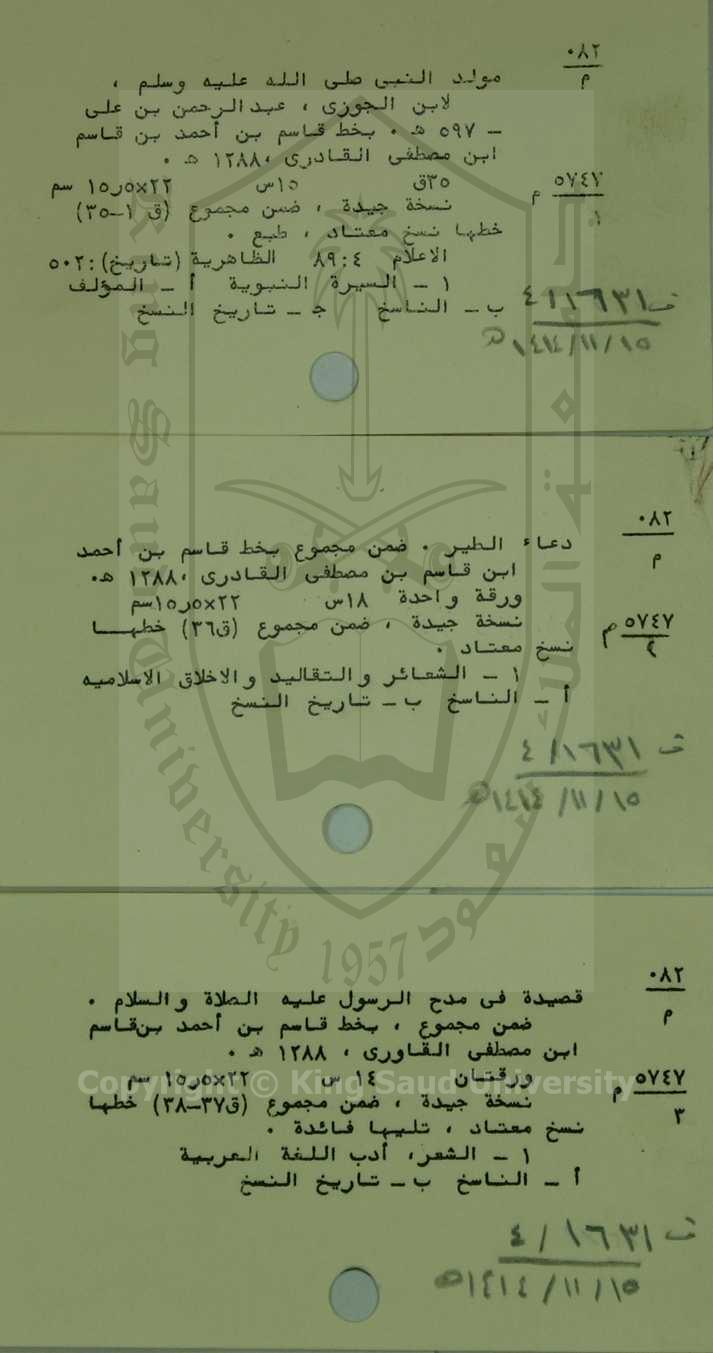 ٠٨٢
م
مولد النبى صلى الله عليه وسلم ،
لابن الجوزى ، عبدالرحمن بن على
– ٥٩٧ هـ ٠ بخط قاسم بن أحمد بن قاسم
ابن مصطفى القادرى ،١٢٨٨ هـ ٠
٥٧٤٧ م
١
٣٥ق ١٥س ٢٢×٥ر١٥ سم
نسخة جيدة ، ضمن مجموع (ق ١–٣٥)
خطها نسخ معتاد ، طبع ٠
الاعلام ٤ : ٨٩ الظاهرية (تاريخ) : ٥٠٢
١ – السيرة النبوية أ – المؤلف
ب – الناسخ جـ – تاريخ النسخ
ف ٤/١٦٣١
١٤١٤/١١/١٥ هـ
٠٨٢
م
دعاء الطير ٠ ضمن مجموع بخط قاسم بن أحمد
ابن قاسم بن مصطفى القادرى ،١٢٨٨ هـ٠
ورقة واحدة ١٨س ٢٢×٥ر١٥سم
٥٧٤٧ م
٢
نسخة جيدة ، ضمن مجموع (ق٣٦) خطهـا
نسخ معتاد ٠
١ – الشعائر والتقاليد والاخلاق الاسلاميه
أ – الناسخ ب – تاريخ النسخ
ف ٤/١٦٣١
١٤١٤/١١/١٥ هـ
٠٨٢
م
قصيدة فى مدح الرسول عليه الصلاة والسلام ٠
ضمن مجموع ، بخط قاسم بن أحمد بن قاسم
ابن مصطفى القاورى ، ١٢٨٨ هـ ٠
٥٧٤٧ م
٣
ورقتان ١٤ س ٢٢×٥ر١٥ سم
نسخة جيدة ، ضمن مجموع (ق٣٧–٣٨) خطها
نسخ معتاد ، تليها فائدة ٠
١ – الشعر، أدب اللغة العربية
أ – الناسخ ب – تاريخ النسخ
ف ٤/١٦٣١
١٤١٤/١١/١٥ هـ
King Saud University
جامعة الملك سعود
1957
Copyright © King Saud University